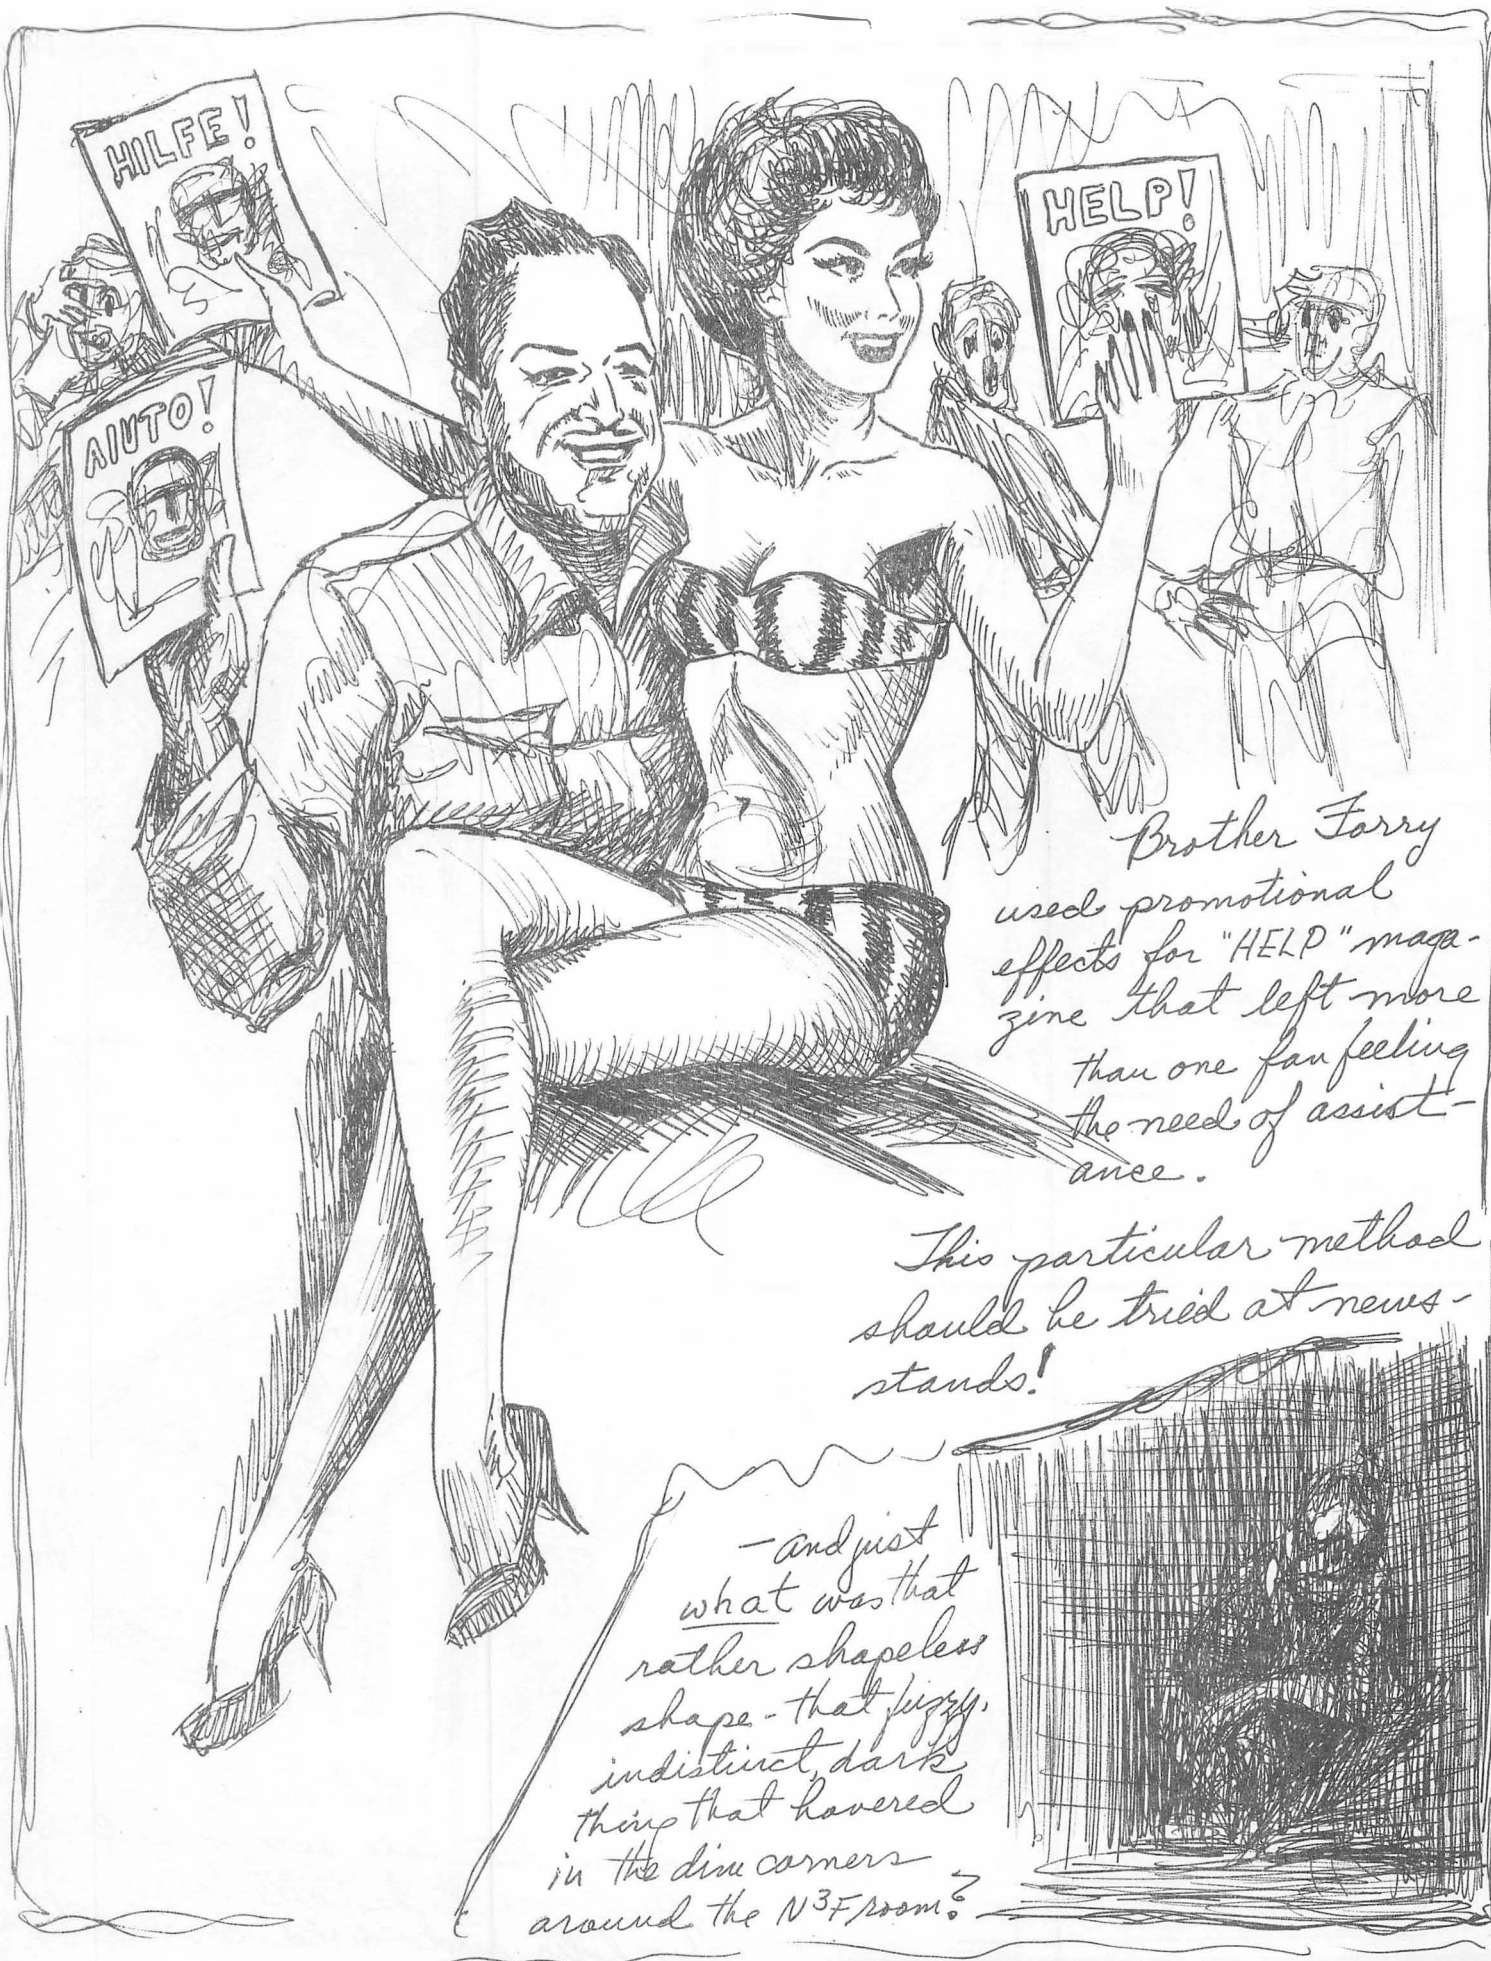 HILFE!
HELP!
AIUTO!
Brother Forry
used promotional
effects for "HELP" maga-
zine that left more
than one fan feeling
the need of assist-
ance.
This particular method
should be tried at news-
stands!
- and just
what was that
rather shapeless
shape - that fuzzy,
indistinct, dark
thing that hovered
in the dim corners
around the N3F room?